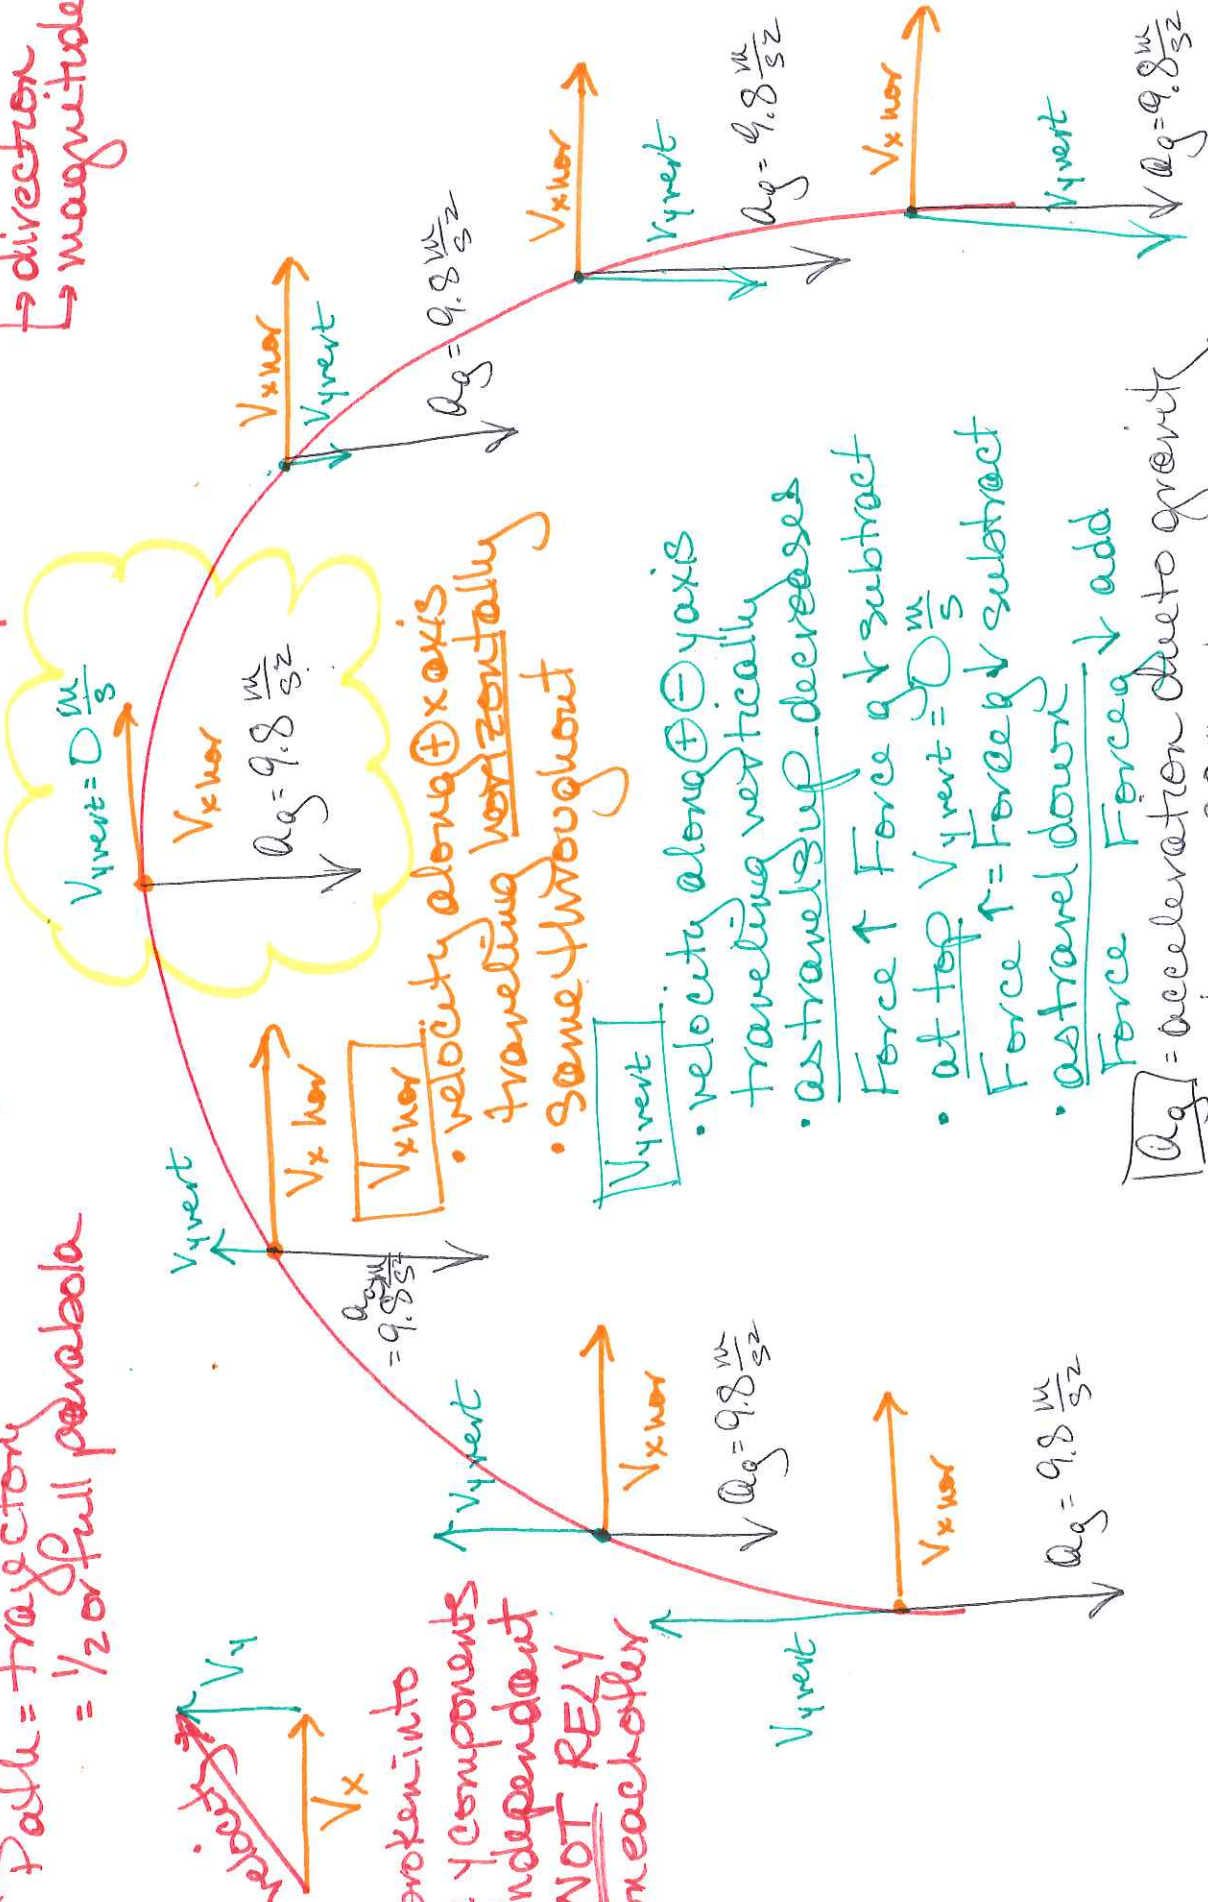 Path = trajectory
= 1/2 or full parabola
↳ direction
↳ magnitude
velocity
Vy
Vx
broken into
y components
independant
NOT RELY
on eachother
Vyvert
Vx hor
ag = 9.8 m/s2
Vyvert
Vx hor
ag = 9.8 m/s2
Vyvert
Vx hor
ag = 9.8 m/s2
Vyvert = 0 m/s
Vx hor
ag = 9.8 m/s2
Vx hor
Vyvert
ag = 9.8 m/s2
Vx hor
Vyvert
ag = 9.8 m/s2
Vx hor
Vyvert
ag = 9.8 m/s2
Vx hor
• velocity along ⊕ x axis
traveling horizontally
• same throughout
Vyvert
• velocity along ⊕ ⊖ y axis
traveling vertically
• as travels up decreases
Force ↑ Force g ↓ subtract
• at top Vyvert = 0 m/s
Force ↑ = Force g ↓ subtract
• as travel down
Force Force g ↓ add
ag = acceleration due to gravity